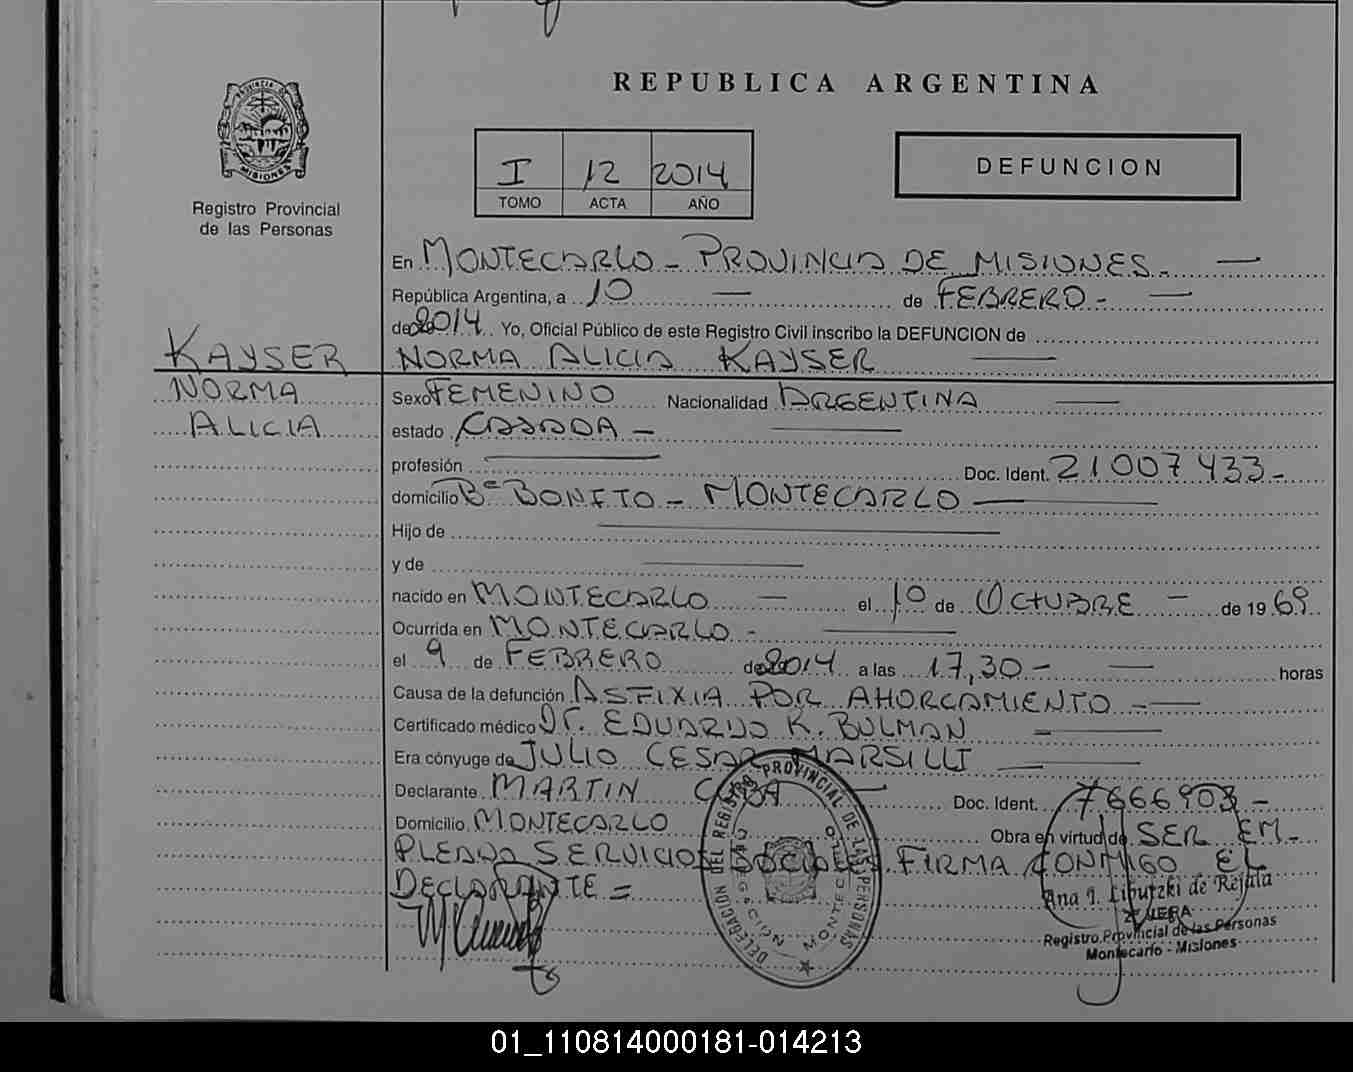 REPUBLICA ARGENTINA
PROVINCIA DE
MISIONES
Registro Provincial
de las Personas
I 12 2014
TOMO ACTA AÑO
DEFUNCION
En MONTECARLO - PROVINCIA DE MISIONES.
República Argentina, a 10 de FEBRERO -
de 2014 Yo, Oficial Público de este Registro Civil inscribo la DEFUNCION de
KAYSER
NORMA
ALICIA
NORMA ALICIA KAYSER
Sexo FEMENINO Nacionalidad ARGENTINA
estado CASADA -
profesión Doc. Ident. 21007433-
domicilio Bº BONITO - MONTECARLO
Hijo de
y de
nacido en MONTECARLO el 1º de OCTUBRE de 1969
Ocurrida en MONTECARLO -
el 9 de FEBRERO de 2014 a las 17,30 - horas
Causa de la defunción ASFIXIA POR AHORCAMIENTO -
Certificado médico Dr. EDUARDO K. BULMAN
Era cónyuge de JULIO CESAR MARSILLI
Declarante MARTIN Doc. Ident. 7666903-
Domicilio MONTECARLO Obra en virtud de SER EM-
PLEADO SERVICIOS SOCIALES. FIRMA CONMIGO EL
DECLARANTE =
DELEGACION DEL REGISTRO PROVINCIAL DE LAS PERSONAS
MONTECARLO
Ana I. Liputzki de Rejala
Registro Provincial de las Personas
Montecarlo - Misiones
01_110814000181-014213